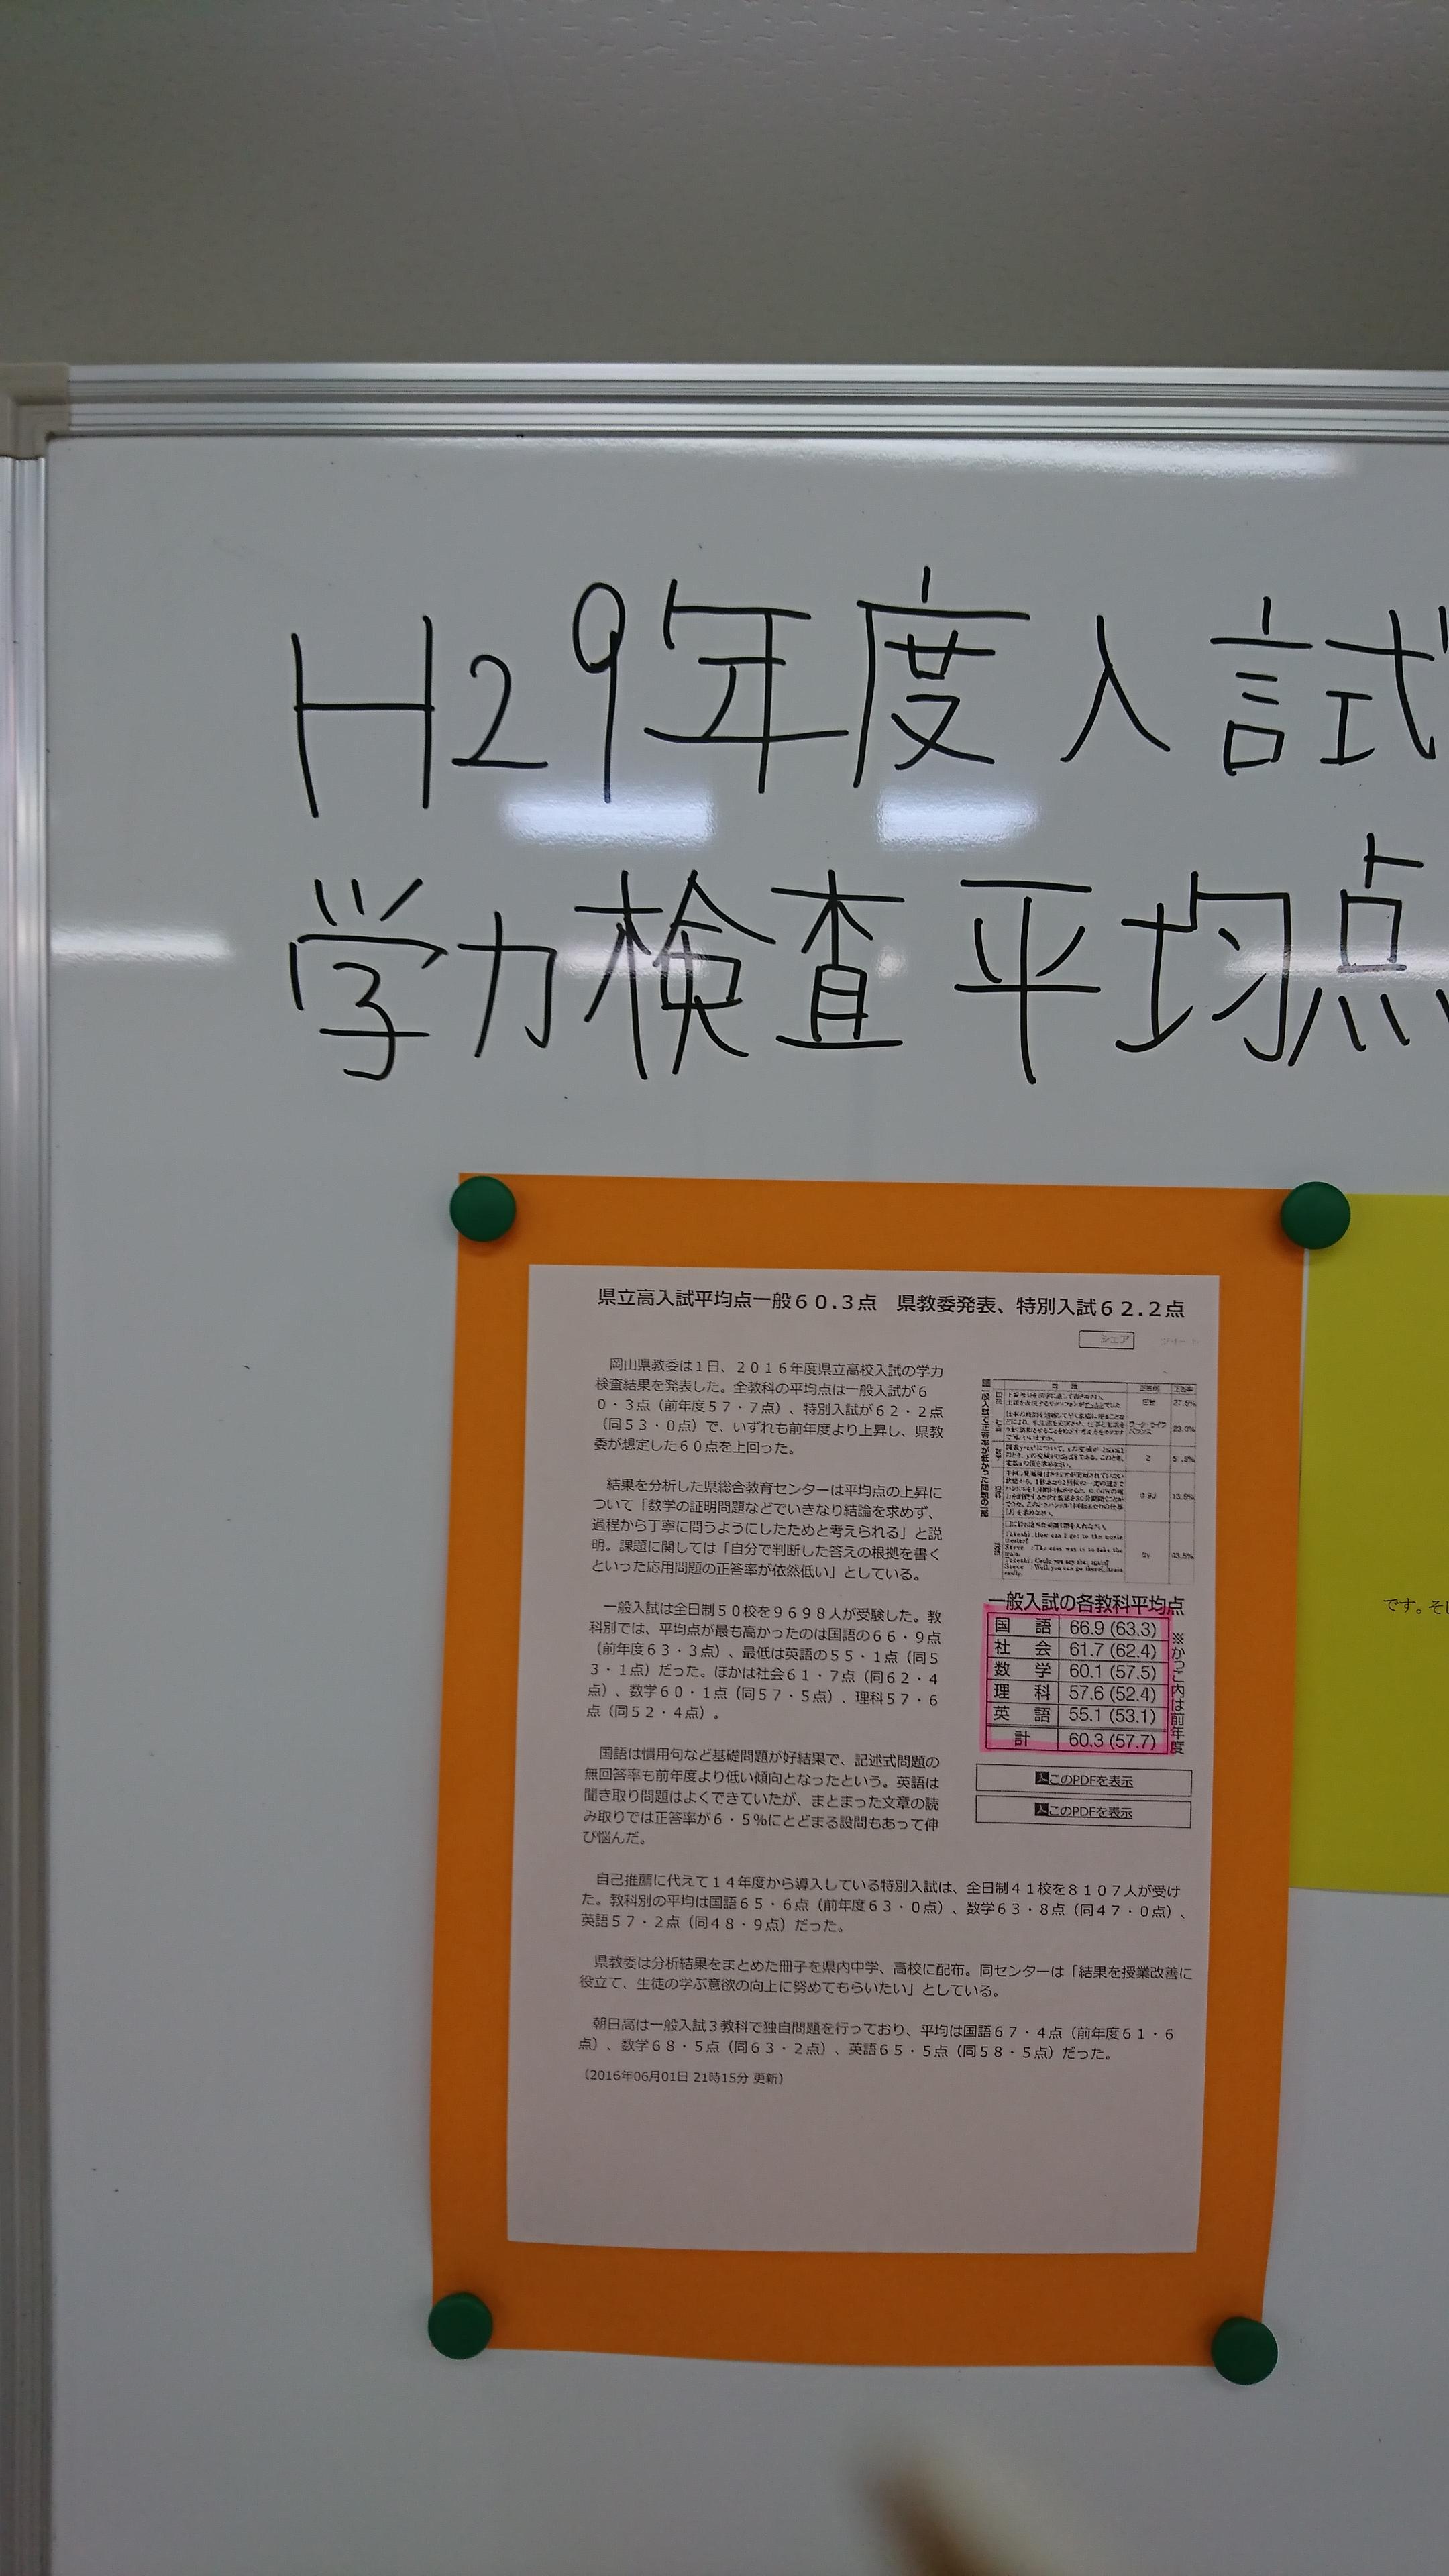 H29年度入試
学力検査平均点
県立高入試平均点一般６０.３点　県教委発表、特別入試６２.２点
シェア
岡山県教委は１日、２０１６年度県立高校入試の学力
検査結果を発表した。全教科の平均点は一般入試が６
０・３点（前年度５７・７点）、特別入試が６２・２点
（同５３・０点）で、いずれも前年度より上昇し、県教
委が想定した６０点を上回った。
結果を分析した県総合教育センターは平均点の上昇に
ついて「数学の証明問題などでいきなり結論を求めず、
過程から丁寧に問うようにしたためと考えられる」と説
明。課題に関しては「自分で判断した答えの根拠を書く
といった応用問題の正答率が依然低い」としている。
一般入試は全日制５０校を９６９８人が受験した。教
科別では、平均点が最も高かったのは国語の６６・９点
（前年度６３・３点）、最低は英語の５５・１点（同５
３・１点）だった。ほかは社会６１・７点（同６２・４
点）、数学６０・１点（同５７・５点）、理科５７・６
点（同５２・４点）。
国語は慣用句など基礎問題が好結果で、記述式問題の
無回答率も前年度より低い傾向となったという。英語は
聞き取り問題はよくできていたが、まとまった文章の読
み取りでは正答率が６・５％にとどまる設問もあって伸
び悩んだ。
一般入試の各教科平均点
国　語 66.9 (63.3)
社　会 61.7 (62.4)
数　学 60.1 (57.5)
理　科 57.6 (52.4)
英　語 55.1 (53.1)
計 60.3 (57.7)
※かっこ内は前年度
このPDFを表示
このPDFを表示
自己推薦に代えて１４年度から導入している特別入試は、全日制４１校を８１０７人が受け
た。教科別の平均は国語６５・６点（前年度６３・０点）、数学６３・８点（同４７・０点）、
英語５７・２点（同４８・９点）だった。
県教委は分析結果をまとめた冊子を県内中学、高校に配布。同センターは「結果を授業改善に
役立て、生徒の学ぶ意欲の向上に努めてもらいたい」としている。
朝日高は一般入試３教科で独自問題を行っており、平均は国語６７・４点（前年度６１・６
点）、数学６８・５点（同６３・２点）、英語６５・５点（同５８・５点）だった。
（2016年06月01日 21時15分 更新）
です。そし